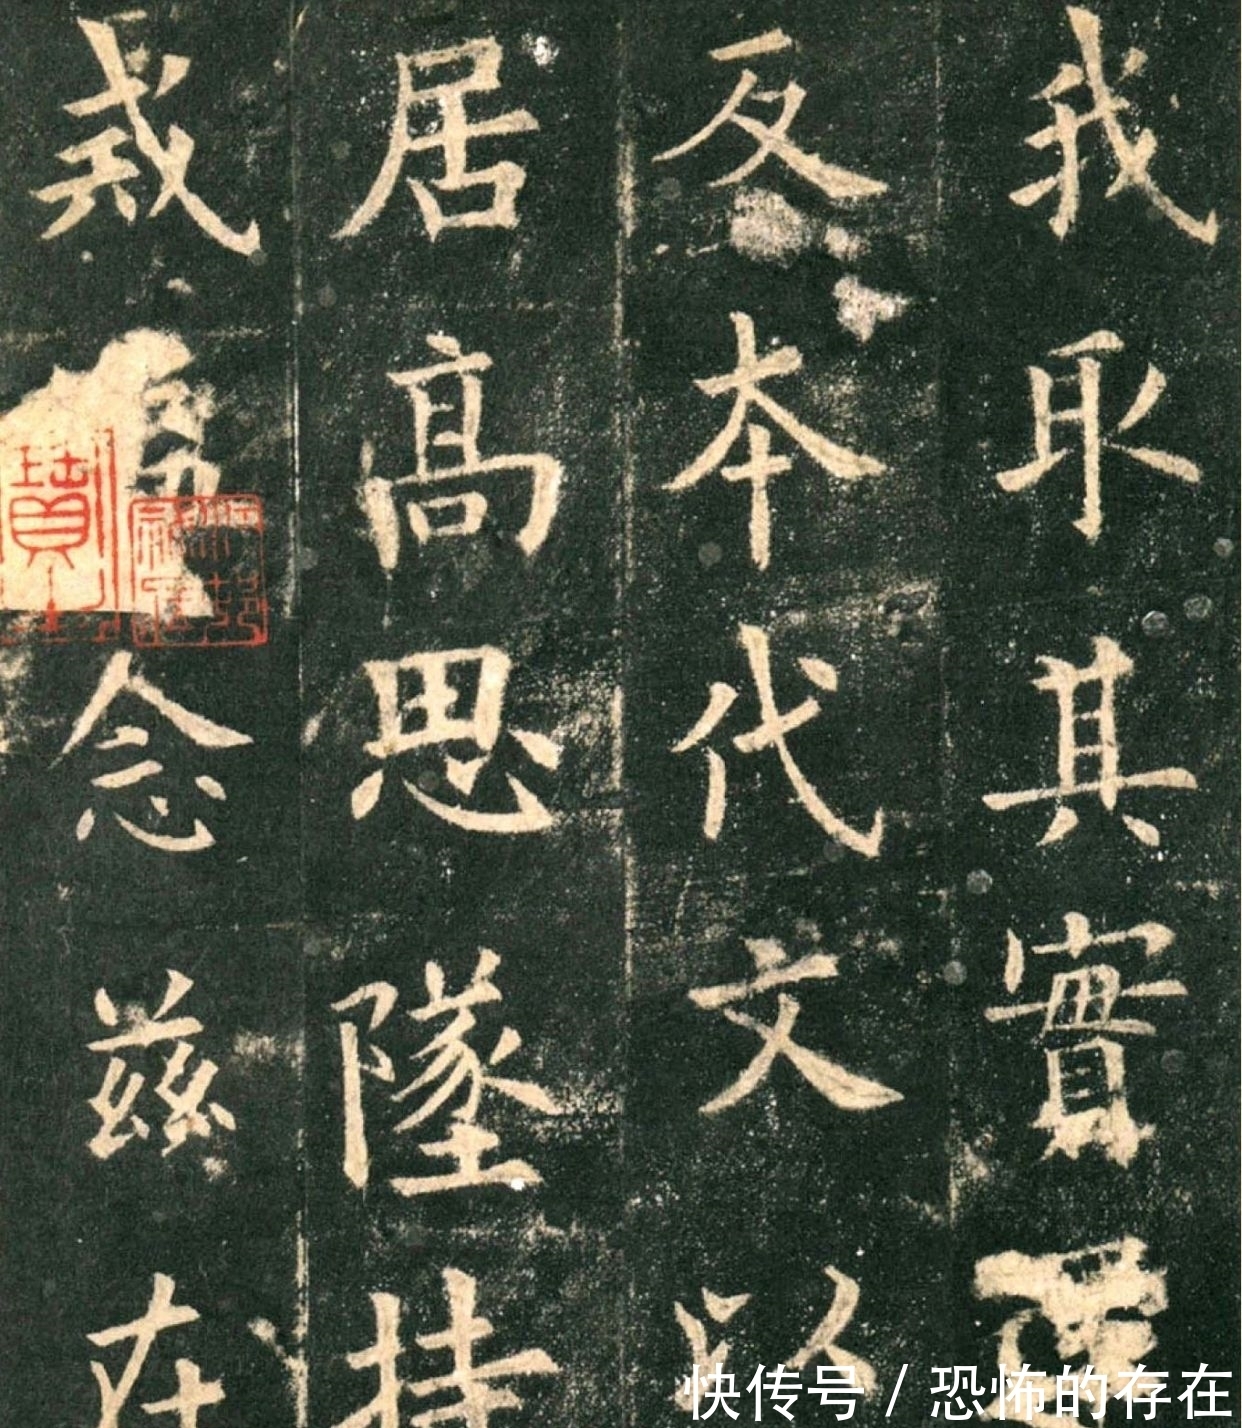 我取其實
反本代文以
居高思墜持
戒念茲在
快传号 / 恐怖的存在